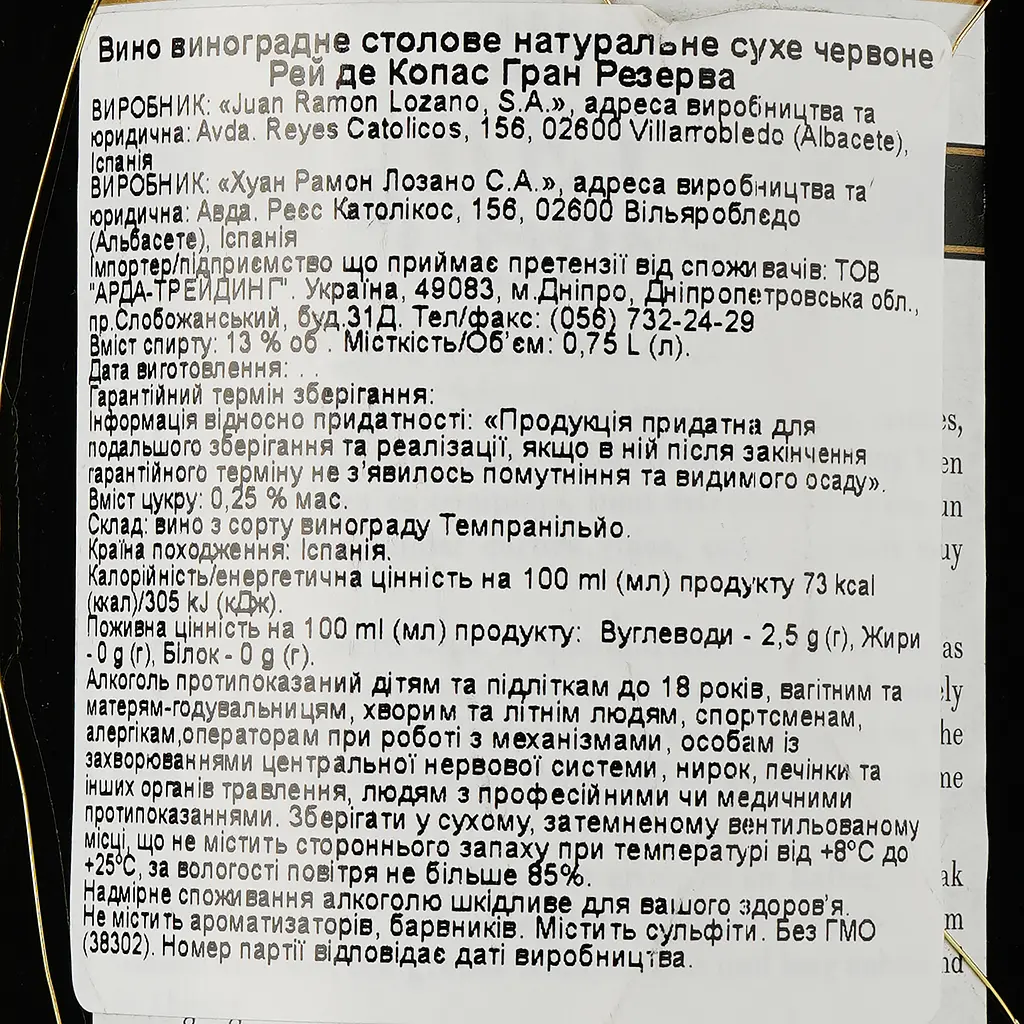 Вино виноградне столове натуральне сухе червоне
Рей де Копас Гран Резерва
ВИРОБНИК: «Juan Ramon Lozano, S.A.», адреса виробництва та
юридична: Avda. Reyes Catolicos, 156, 02600 Villarrobledo (Albacete),
Іспанія
ВИРОБНИК: «Хуан Рамон Лозано С.А.», адреса виробництва та
юридична: Авда. Реєс Католікос, 156, 02600 Вільяробледо
(Альбасете), Іспанія
Імпортер/підприємство що приймає претензії від споживачів: ТОВ
"АРДА-ТРЕЙДИНГ". Україна, 49083, м.Дніпро, Дніпропетровська обл.,
пр.Слобожанський, буд.31Д. Тел/факс: (056) 732-24-29
Вміст спирту: 13 % об . Місткість/Об'єм: 0,75 L (л).
Дата виготовлення: . .
Гарантійний термін зберігання:
Інформація відносно придатності: «Продукція придатна для
подальшого зберігання та реалізації, якщо в ній після закінчення
гарантійного терміну не з'явилось помутніння та видимого осаду».
Вміст цукру: 0,25 % мас.
Склад: вино з сорту винограду Темпранільйо.
Країна походження: Іспанія.
Калорійність/енергетична цінність на 100 ml (мл) продукту 73 kcal
(ккал)/305 kJ (кДж).
Поживна цінність на 100 ml (мл) продукту: Вуглеводи - 2,5 g (г), Жири
- 0 g (г), Білок - 0 g (г).
Алкоголь протипоказаний дітям та підліткам до 18 років, вагітним та
матерям-годувальницям, хворим та літнім людям, спортсменам,
алергікам,операторам при роботі з механізмами, особам із
захворюваннями центральної нервової системи, нирок, печінки та
інших органів травлення, людям з професійними чи медичними
протипоказаннями. Зберігати у сухому, затемненому вентильованому
місці, що не містить стороннього запаху при температурі від +8°С до
+25°С, за вологості повітря не більше 85%.
Надмірне споживання алкоголю шкідливе для вашого здоров'я.
Не містить ароматизаторів, барвників. Містить сульфіти. Без ГМО
(38302). Номер партії відповідає даті виробництва.